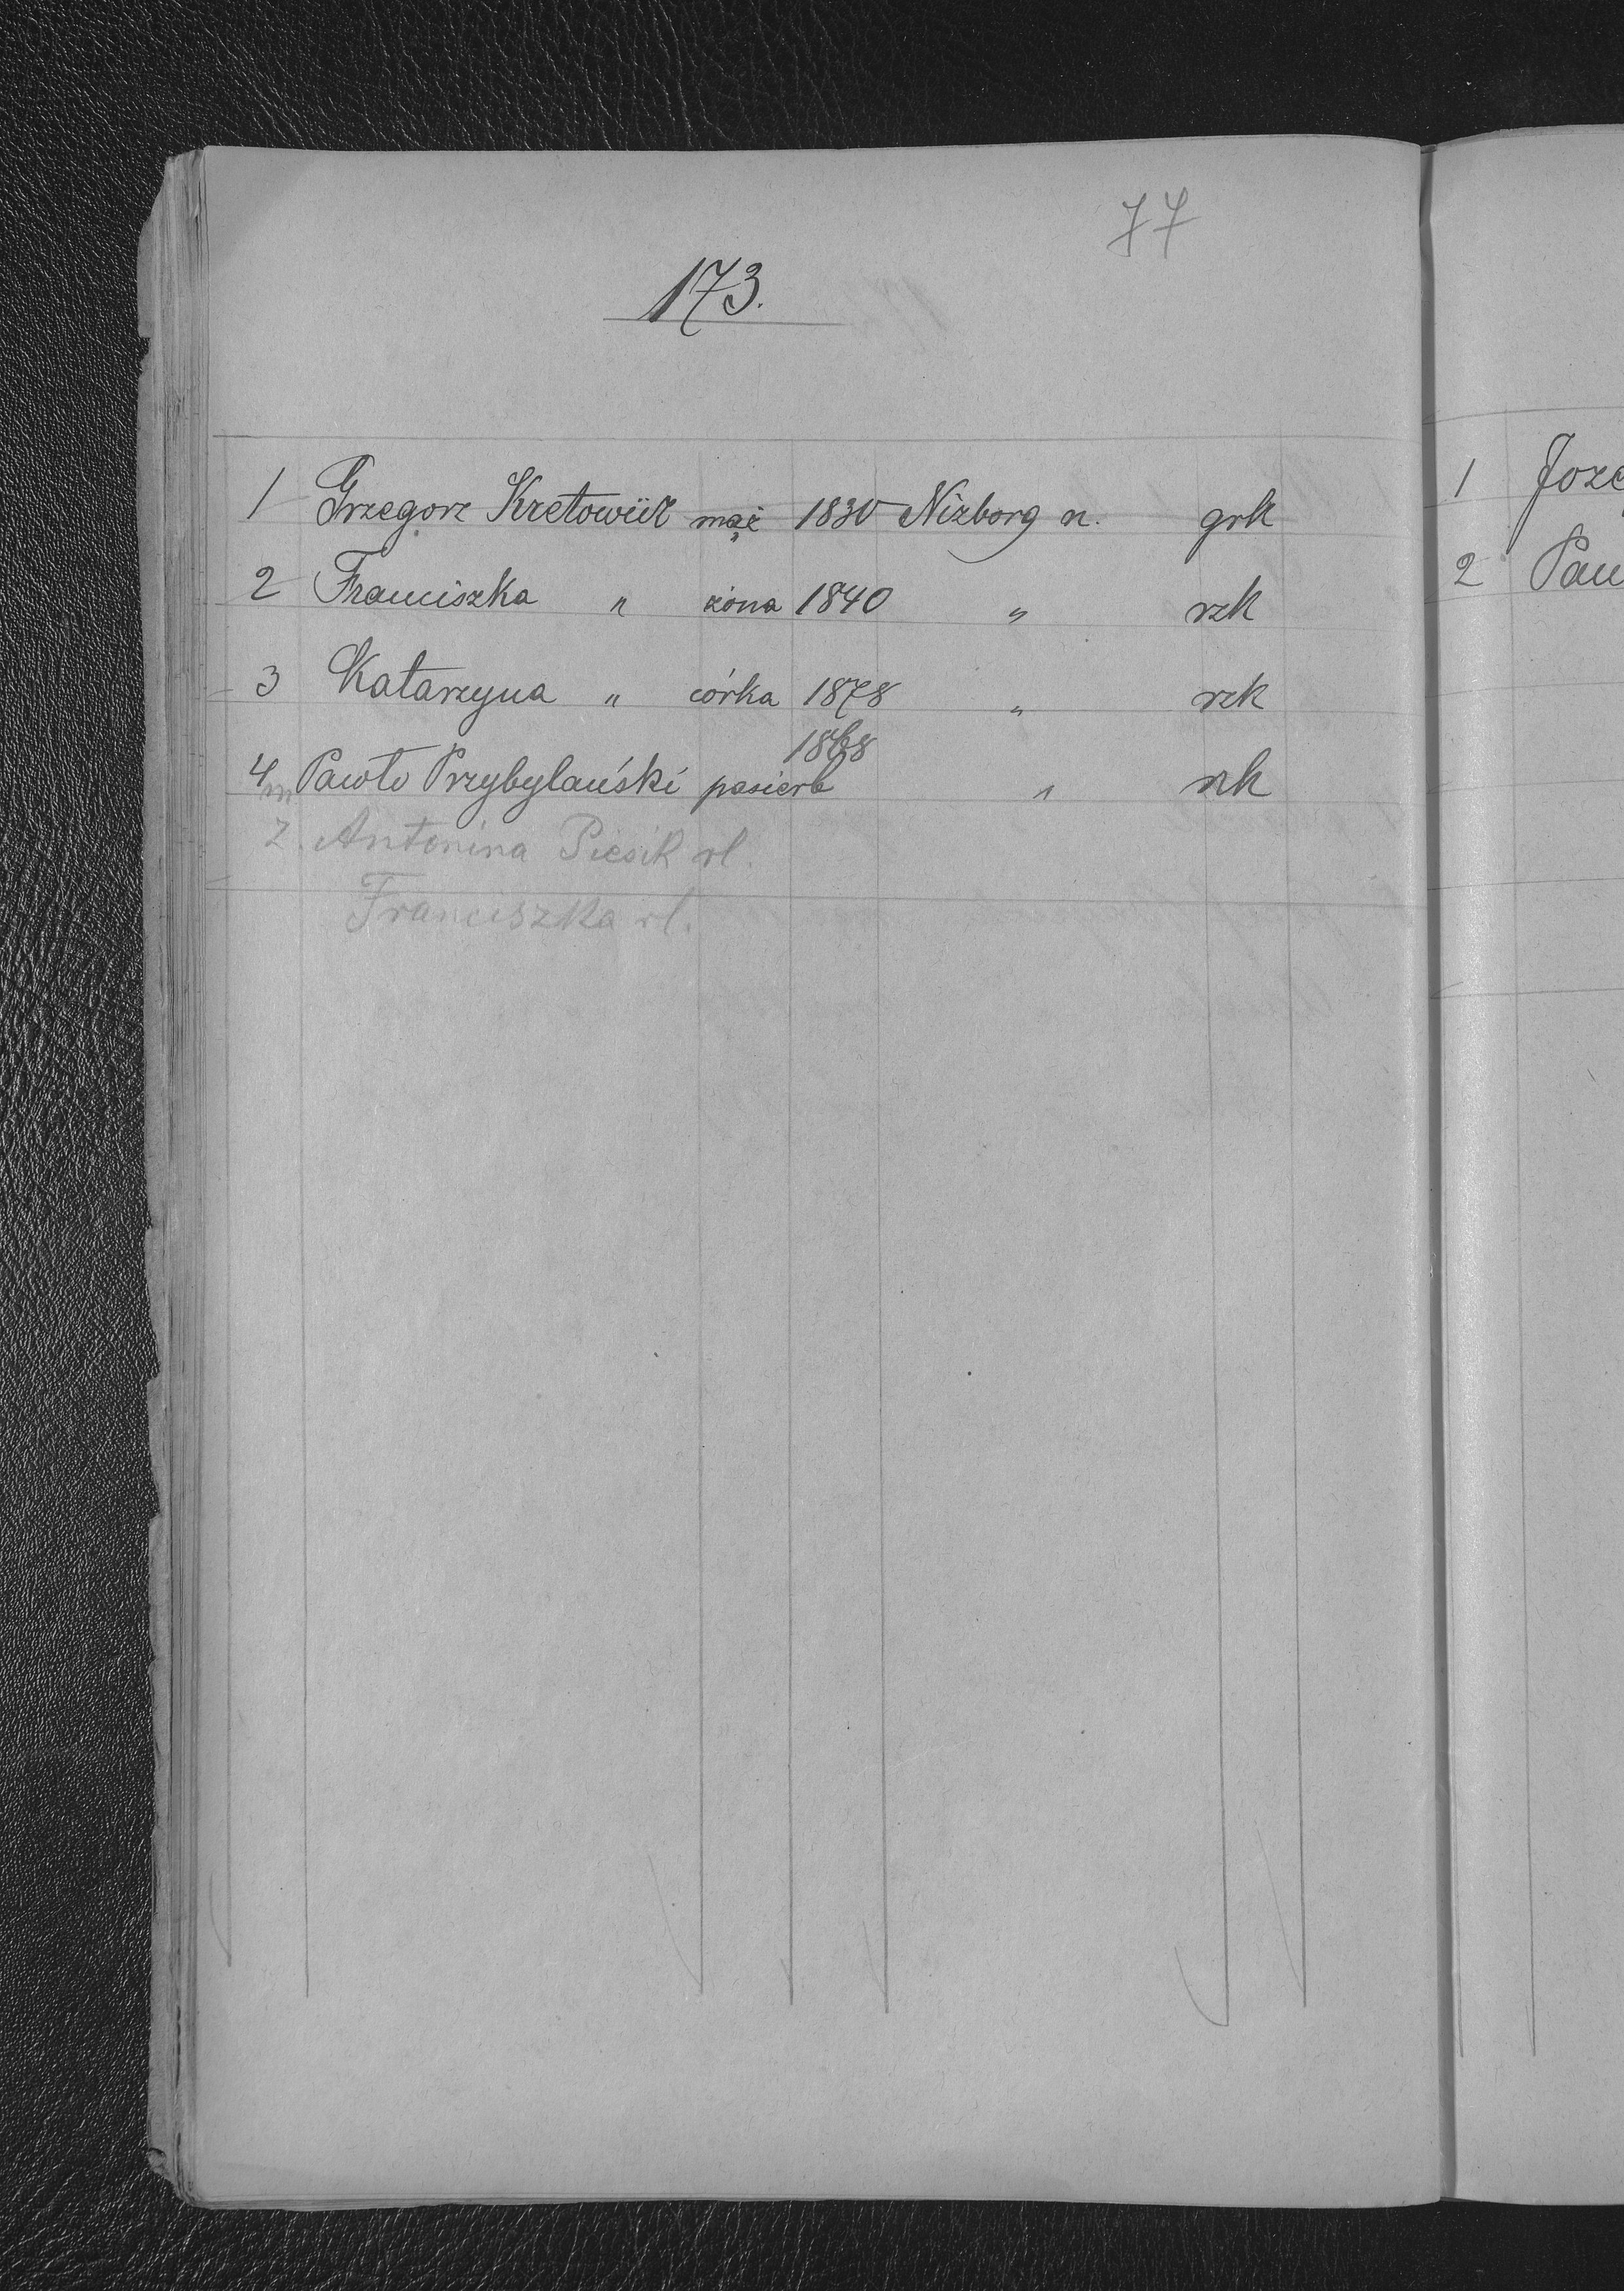 77
173.
1 Grzegorz Kretowicz mąż 1830 Niżborg n. grk
2 Franciszka " żona 1840 " rzk
3 Katarzyna " córka 1878 " rzk
1868
4 Pawło Przybylański pasierb " rzk
m
ż. Antonina Piesik rl.
Franciszka rl.
1 Joze
2 Paw